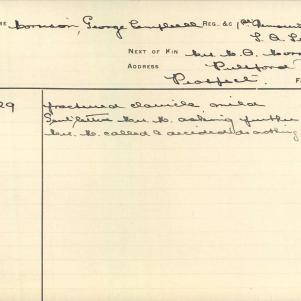 RE Morrison, George Campbell REG. &C 1st Armou
L.A.
NEXT OF KIN Mrs M. A. Morr
ADDRESS Pulsford
Prospect. F
29 fractured clavicle, mild
Sent letter Mrs M. asking further
Mrs M. called & decided do nothing